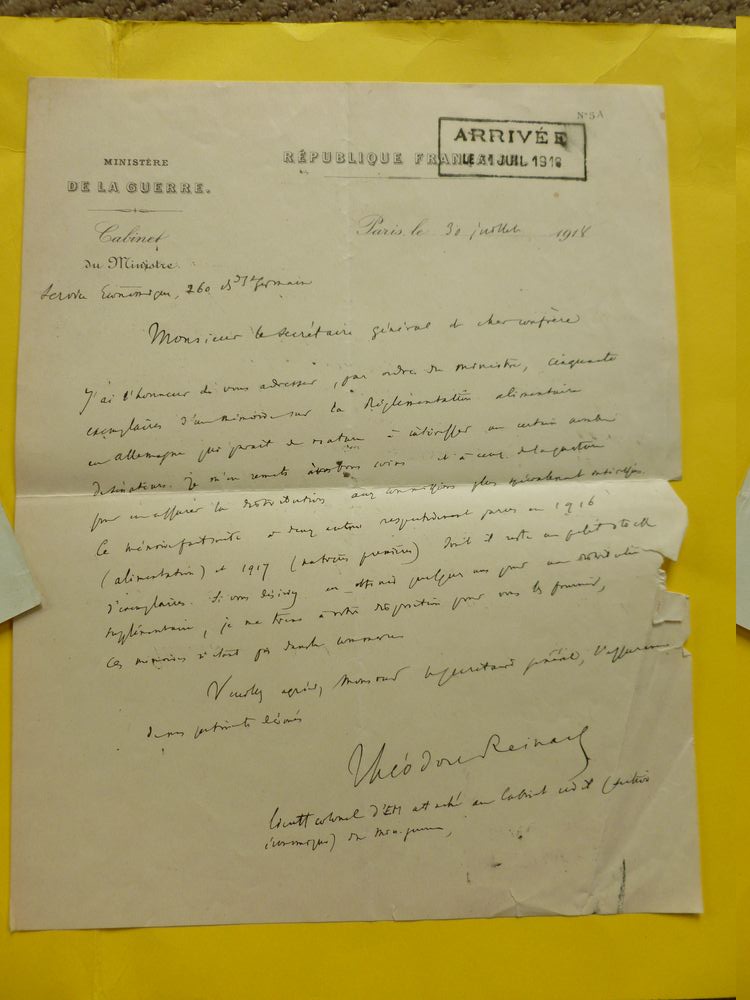 N° 5A
ARRIVÉE
LE 31 JUIL 1918
MINISTÈRE
DE LA GUERRE.
RÉPUBLIQUE FRANÇAISE
Cabinet
du Ministre.
Paris, le 30 juillet 1918
Service Économique, 260 Bd St Germain
Monsieur le secrétaire général et cher confrère
J'ai l'honneur de vous adresser, par ordre du ministre, cinquante
exemplaires d'un mémoire sur la Réglementation alimentaire
en allemagne qui parait de nature à intéresser un certain nombre
Je m'en remets à vos bons soins et à ceux de la questure
pour en assurer la distribution aux commissions plus spécialement intéressées
Ce mémoire fait suite à deux autres respectivement parus en 1916
(alimentation) et 1917 (matières premières) dont il reste un petit stock
d'exemplaires. Si vous désirez en obtenir quelques uns pour une distribution
supplémentaire, je me tiens à votre disposition pour vous les fournir,
ces mémoires n'étant pas dans le commerce
Veuillez agréer, Monsieur le secrétaire général, l'assurance
de mes sentiments dévoués
Théodore Reinach
lieutt colonel d'EM attaché au Cabinet (section
économique) du Min. guerre,